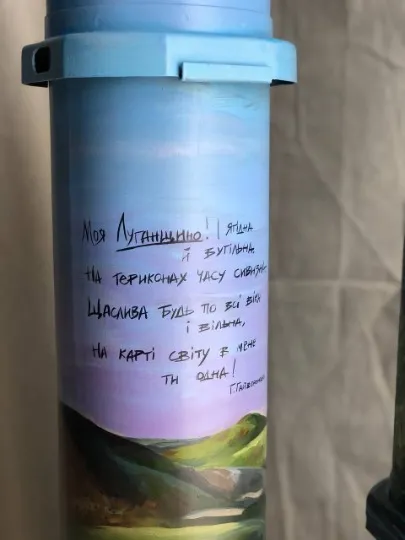 Моя Луганщино! Ягідна
й вугільна
На териконах часу сивизна
Щаслива будь по всі віка
і вільна,
На карті світу в мене
ти одна!